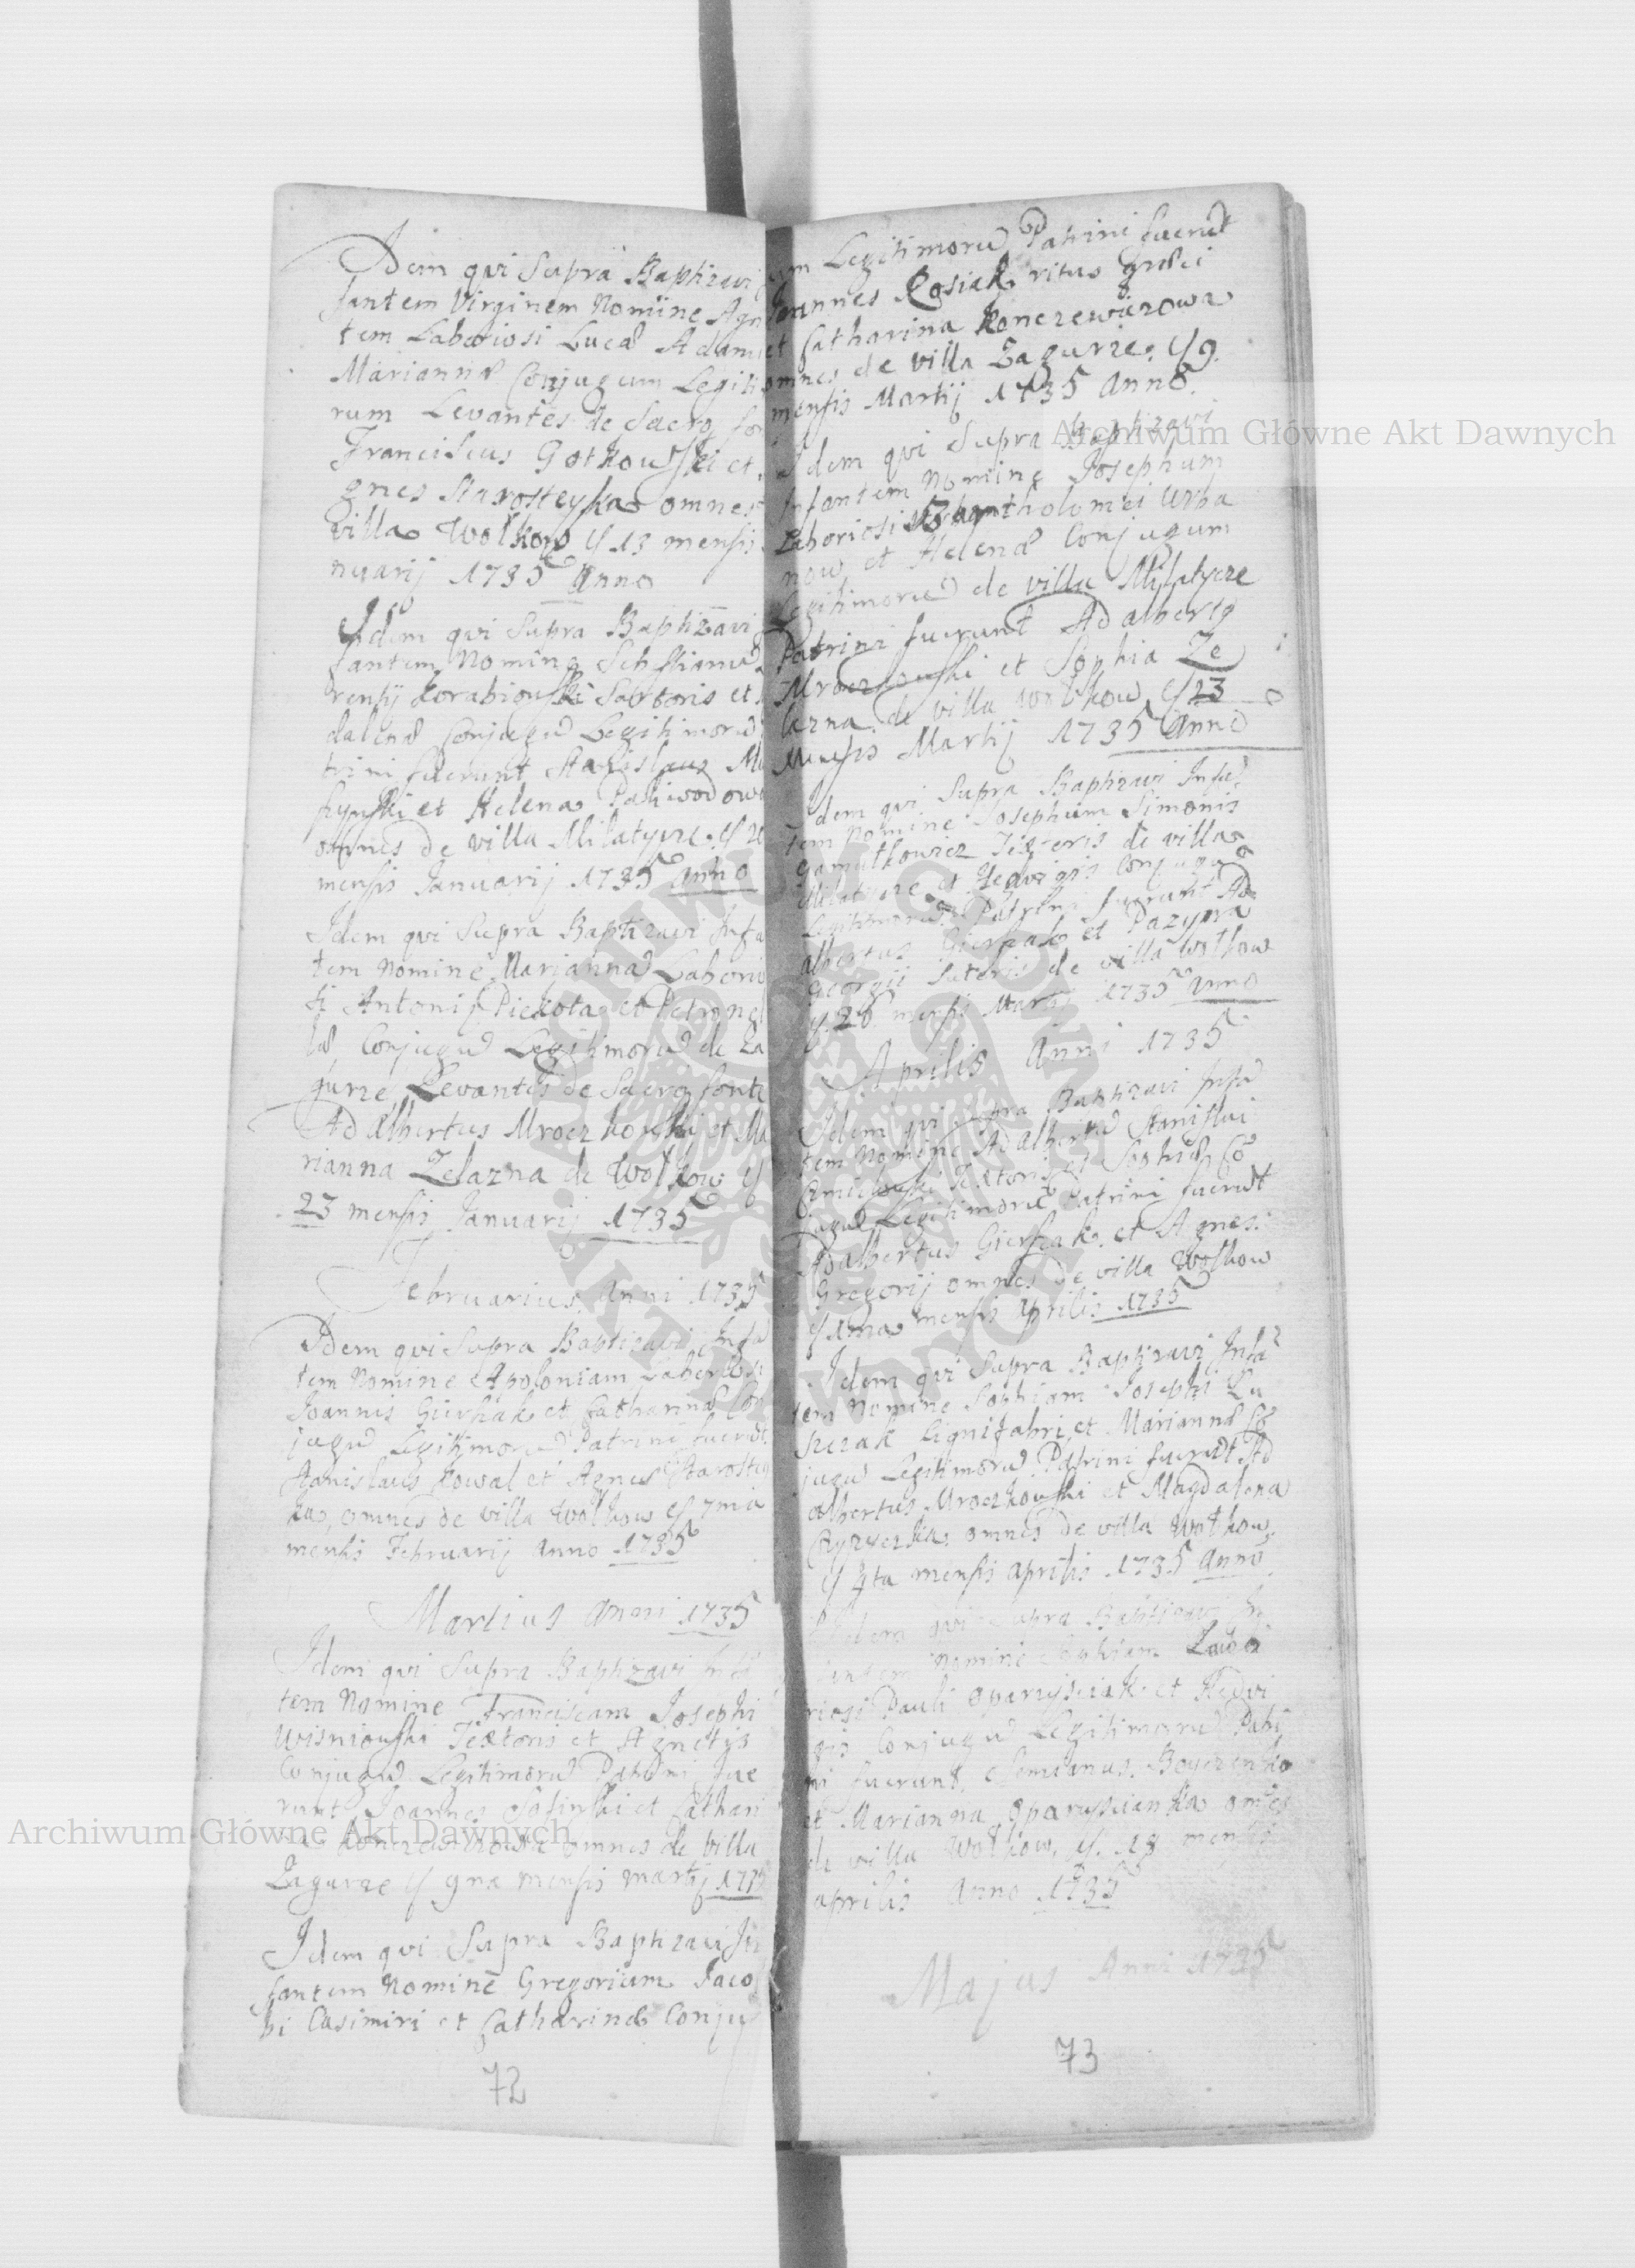 Idem qui Supra Baptizavi
fantem Virginem Nomine Agn
tem Laboriosi Lucæ Adam
Mariannæ Conjugum Legiti
rum Levantes de Sacro fon
Franciscus Gotkowski et
gnes Starosteyka omnes
villa Wolkow 13 mensis
nuarij 1735 Anno
Idem qui Supra Baptizavi
fantem Nomine
rentij Korabiowski Sartoris et
dalenæ Conjugū Legitimorū
trini fuerunt Stanislaus
et Helena
omnes de villa Milatycze
mensis Januarij 1735 anno
Idem qui Supra Baptizavi Infa
tem Nomine Mariannā Laborio
si Antonij Piekota et Petronel
læ Conjugū Legitimorū de Za
gurze Levantes de Sacro fonte
Adalbertus Mroczkowski et Ma
rianna Zelazna de Wolkow
23 mensis Januarij 1735
Februarius Anni 1735
Idem qui Supra Baptizavi Infā
tem Nomine Apoloniam Laboriosi
Joannis et Catharinæ Con
jugū Legitimorū Patrini fuerūt
Stanislaus Kowal et Agnes Starostey
ka, omnes de villa Wolkow 7ma
mensis Februarij Anno 1735
Martius Anni 1735
Idem qui Supra Baptizavi Infā
tem Nomine Franciscam Josephi
Wisniowski Textoris et Agnetis
Conjugū Legitimorū Patrini fue
runt Joannes et Cathari
na omnes de villa
Zagurze 9na mensis Martij 1735
Idem qui Supra Baptizavi In
fantem Nomine Gregorium Jaco
bi Casimiri et Catharinæ Conju
72
um Legitimorū Patrini fuerūt
Joannes Kosiak ritus
et Catharina Konczewiczowa
omnes de villa Zagurze 9
mensis Martij 1735 Anno
Idem qui Supra Baptizavi
Infantem Nomine Josephum
Laboriosi Bartholomei Urba
now et Helenæ Conjugum
Legitimorū de villa Milatycze
Patrini fuerunt Adalbertg
Mroczkowski et Sophia Ze
lazna de villa Wolkow 23
Mensis Martij 1735 Anno
Idem qui Supra Baptizavi Infā
tem Nomine Josephum Simonis
Textoris de villa
Milatycze et Hedvigis Conjugū
Legitimorū Patrini fuerunt Ad
albertus et
Georgii Sutoris de villa Wolkow
28 mensis Martij 1735 Anno
Aprilis Anni 1735
Idem qui Supra Baptizavi Infā
tem Nomine Adalbertū Stanislai
Textoris et Sophiæ Cō
jugū Legitimorū Patrini fuerūt
Adalbertus et Agnes
Gregorij omnes de villa Wolkow
1ma mensis Aprilis 1735
Idem qui Supra Baptizavi Infā
tem Nomine Sophiam Josephi Lu
szczak Lignifabri et Mariannæ Cō
jugū Legitimorū Patrini fuerūt Ad
albertus Mroczkowski et Magdalena
omnes de villa Wolkow
4ta mensis Aprilis 1735 Anno
Idem qui Supra Baptizavi In
fantem Nomine Sophiam Labo
riosi Pauli Oparzysciak et Hedvi
gis Conjugū Legitimorū Patri
ni fuerunt
et Marianna omnes
de villa Wolkow, 18 mensis
Aprilis Anno 1735
Majus Anni 1735
73
Archiwum Główne Akt Dawnych
Archiwum Główne Akt Dawnych
ARCHIWUM GŁÓWNE AKT DAWNYCH